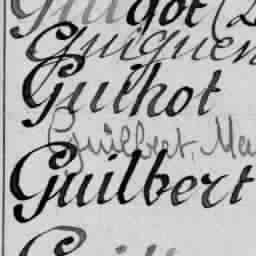 Guigot
Guiguen
Guihot
Guilbert, Ma
Guilbert